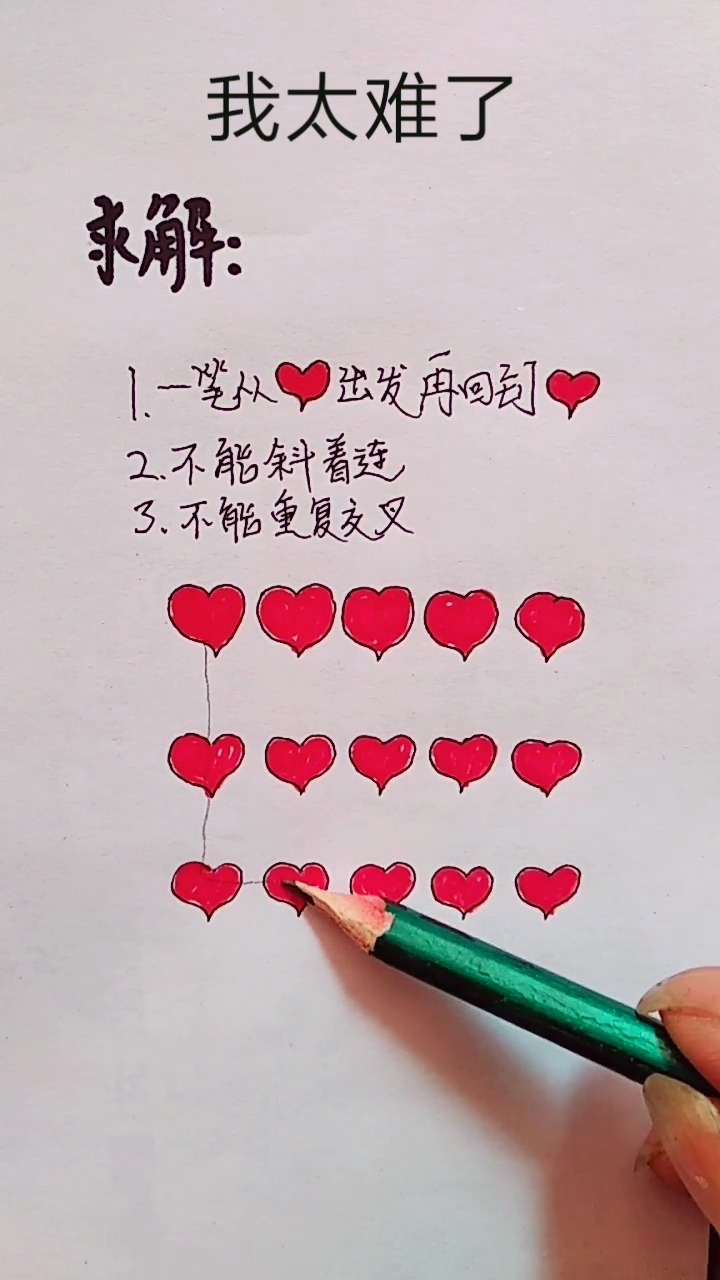 我太难了
求解:
1.一笔从出发再回到
2.不能斜着连
3.不能重复交叉